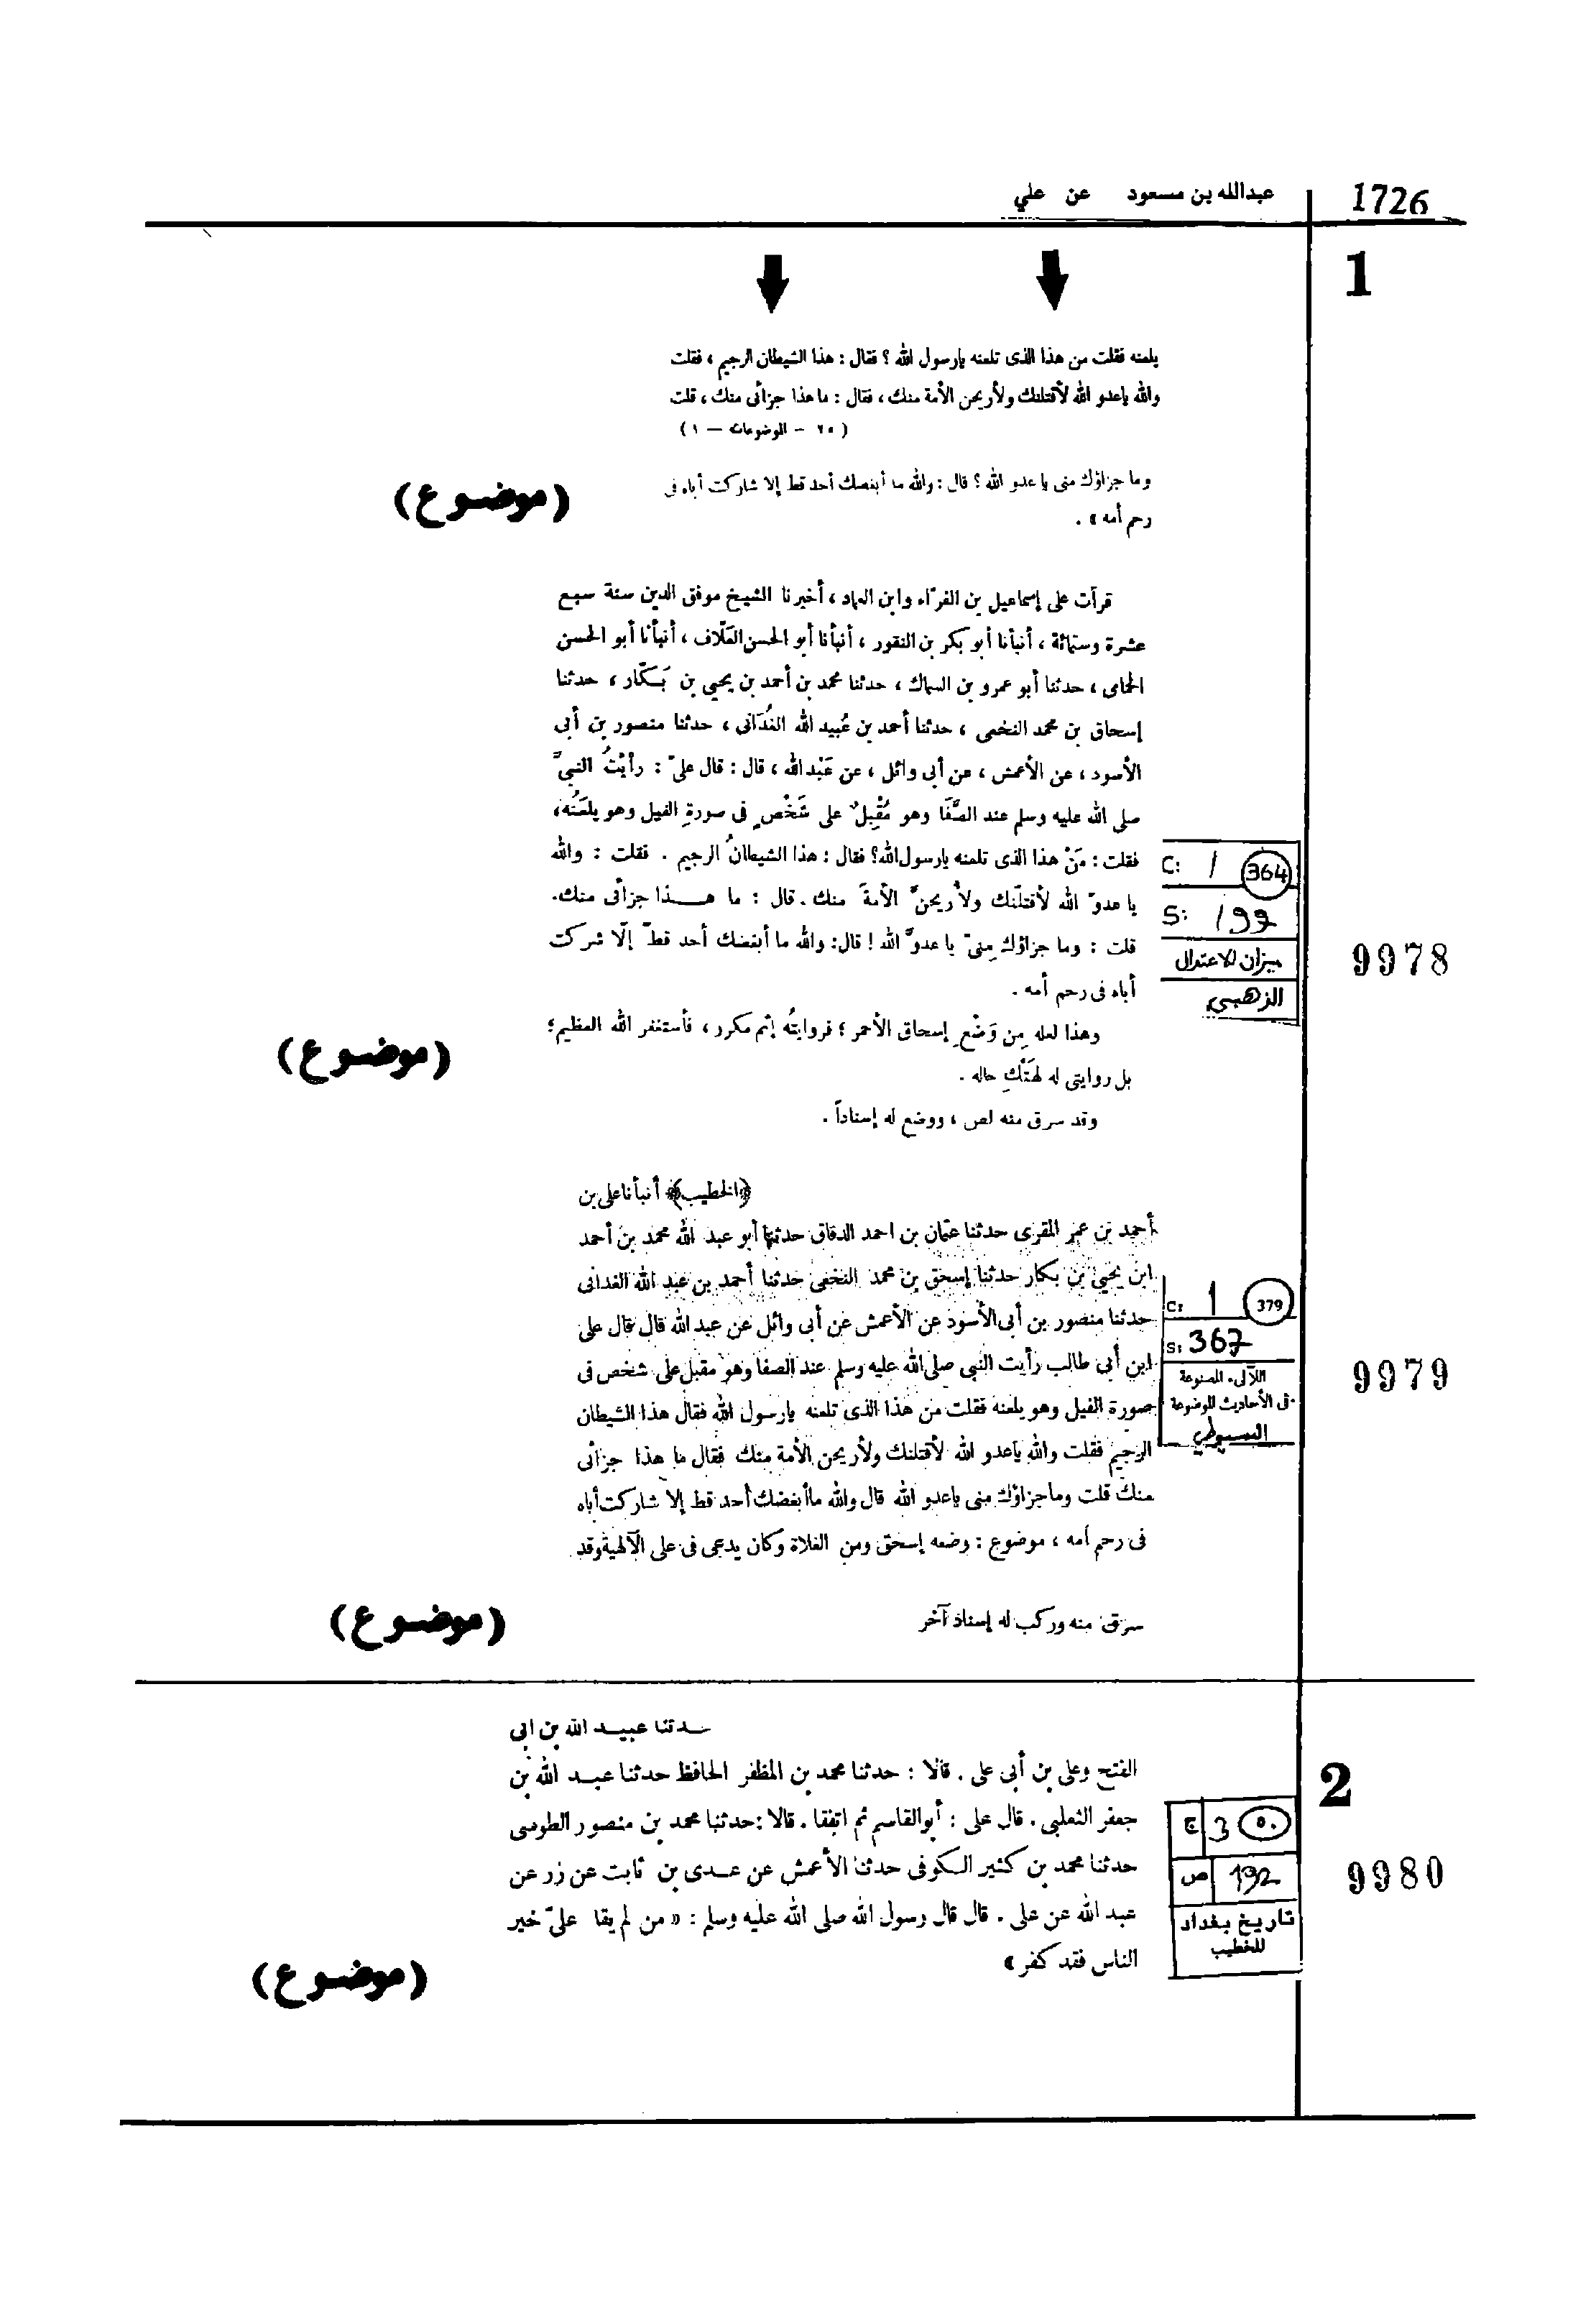 1726
عبدالله بن مسعود عن علي
1
يلعنه فقلت من هذا الذى تلعنه يارسول الله ؟ فقال : هذا الشيطان الرجيم ، فقلت
والله ياعدو الله لأقتلنك ولأريحن الأمة منك ، فقال : ما هذا جزائى منك ، قلت
( ٢٥ – الموضوعات — ١ )
وما جزاؤك منى يا عدو الله ؟ قال : والله ما أبغضك أحد قط إلا شاركت أباه فى
رحم أمه » .
(موضوع)
قرأت على إسماعيل بن الفرّاء وابن العماد ، أخبرنا الشيخ موفق الدين سنة سبع
عشرة وستمائة ، أنبأنا أبو بكر بن النقور ، أنبأنا أبو الحسن العَلّاف ، أنبأنا أبو الحسن
الحمامى ، حدثنا أبو عمرو بن السماك ، حدثنا محمد بن أحمد بن يحيى بن بَكّار ، حدثنا
إسحاق بن محمد النخعى ، حدثنا أحمد بن عُبيد الله الغُدَانى ، حدثنا منصور بن أبى
الأسود ، عن الأعمش ، عن أبى وائل ، عن عَبْد الله ، قال : قال علىّ : رأيْتُ النبىَّ
صلى الله عليه وسلم عند الصَّفَا وهو مُقْبِلٌ على شَخْصٍ فى صورةِ الفيل وهو يلعَنُه،
فقلت : مَنْ هذا الذى تلعنه يارسول الله؟ فقال : هذا الشيطانُ الرجيم . فقلت : والله
يا عدوّ الله لأقتلّنك ولأُريحنَّ الأمةَ منك . قال : ما هـــذا جزائى منك.
قلت : وما جزاؤك مِنىّ يا عدوَّ الله ! قال: والله ما أبغضك أحد قطّ إلّا شركت
أباه فى رحم أمه .
وهذا لعله مِن وَضْعِ إسحاق الأحمر ؛ فروايتُه إثم مكرر ، فأستغفر الله العظيم؛
بل روايتى له لهَتْكِ حاله .
وقد سرق منه لص ، ووضع له إسناداً .
(موضوع)
C: 1 364
S: 197
ميزان الاعتدال
الذهبي
9978
﴿الخطيب﴾ أنبأنا على بن
أحمد بن عمر المقرى حدثنا عثمان بن احمد الدقاق حدثنا أبو عبد الله محمد بن أحمد
ابن يحيى بن بكار حدثنا إسحق بن محمد النخعى حدثنا أحمد بن عبد الله الغدانى
حدثنا منصور بن أبى الأسود عن الأعمش عن أبى وائل عن عبد الله قال قال على
ابن أبى طالب رأيت النبى صلى الله عليه وسلم عند الصفا وهو مقبل على شخص فى
صورة الفيل وهو يلعنه فقلت من هذا الذى تلعنه يارسول الله فقال هذا الشيطان
الرجيم فقلت والله ياعدو الله لأقتلنك ولأريحن الأمة منك فقال ما هذا جزائى
منك قلت وماجزاؤك منى ياعدو الله قال والله ماأبغضك أحد قط إلا شاركت أباه
فى رحم أمه ، موضوع : وضعه إسحق ومن الغلاة وكان يدعى فى على الآلهية وقد
سرق منه وركب له إسناد آخر
(موضوع)
C: 1 379
S: 367
اللآلىء المصنوعة
فى الأحاديث الموضوعة
السيوطي
9979
2
حـدثنا عبيـد الله بن ابى
الفتح وعلى بن أبى على . قالا : حدثنا محمد بن المظفر الحافظ حدثنا عبـد الله بن
جعفر الثعلبى . قال على : أبوالقاسم ثم اتفقا . قالا : حدثنا محمد بن منصور الطوسى
حدثنا محمد بن كثير الكوفى حدثنا الأعمش عن عـدى بن ثابت عن زر عن
عبد الله عن على . قال قال رسول الله صلى الله عليه وسلم : « من لم يقل علىّ خير
الناس فقد كفر »
(موضوع)
ج 3 ٥٠
ص 192
تاريخ بغداد
للخطيب
9980